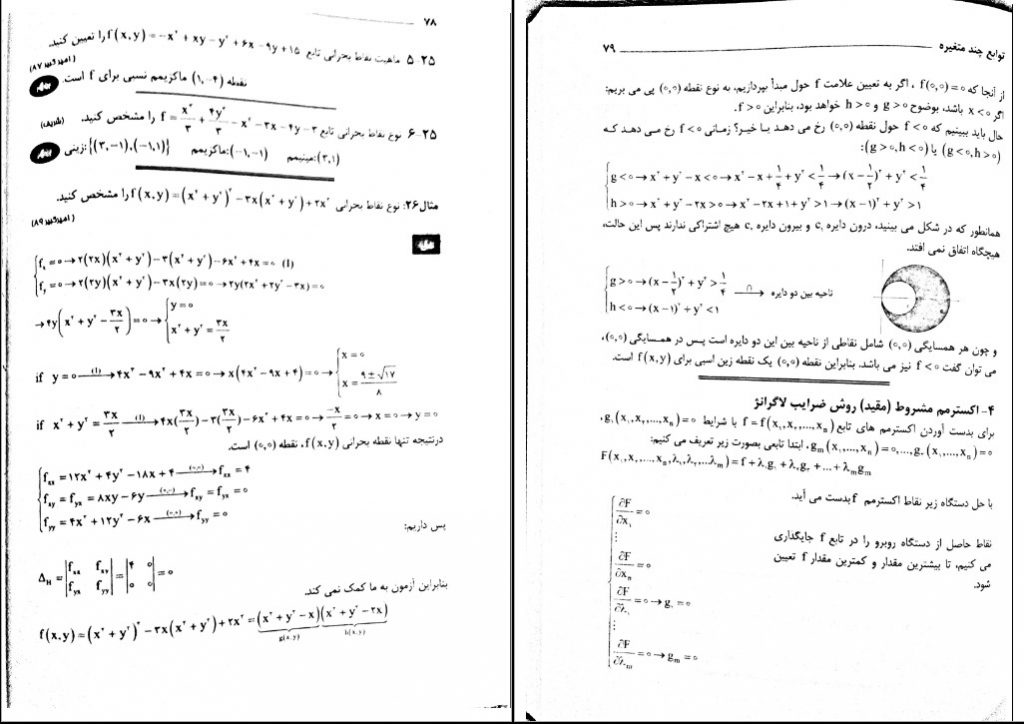 ۷۸
۵-۲۵ ماهیت نقاط بحرانی تابع f(x,y)=-x²+xy-y²+۶x-۹y+۱۵ را تعیین کنید.
(امیرکبیر ۸۷)
نقطه (۱,-۴) ماکزیمم نسبی برای f است.
۶-۲۵ نوع نقاط بحرانی تابع f = x³/۳ + ۴y³/۳ - x² - ۳x - ۴y - ۳ را مشخص کنید. (شریف)
(۳,۱):مینیمم (-۱,-۱):ماکزیمم {(۳,-۱),(-۱,۱)}:زینی
مثال۲۶: نوع نقاط بحرانی f(x,y)=(x²+y²)²-۳x(x²+y²)+۲x² را مشخص کنید.
(امیرکبیر ۸۹)
f_x=۰→۲(۲x)(x²+y²)-۳(x²+y²)-۶x²+۴x=۰ (I)
f_y=۰→۲(۲y)(x²+y²)-۳x(۲y)=۰→۲y(۲x²+۲y²-۳x)=۰
→۴y(x²+y²-۳x/۲)=۰→ { y=۰
x²+y²=۳x/۲
if y=۰ —(I)→ ۴x³-۹x²+۴x=۰→x(۴x²-۹x+۴)=۰→ { x=۰
x=(۹±√۱۷)/۸
if x²+y²=۳x/۲ —(I)→ ۴x(۳x/۲)-۳(۳x/۲)-۶x²+۴x=۰→-x/۲=۰→x=۰→y=۰
درنتیجه تنها نقطه بحرانی f(x,y)، نقطه (۰,۰) است.
f_xx=۱۲x²+۴y²-۱۸x+۴ —(۰,۰)→ f_xx=۴
f_xy=f_yx=۸xy-۶y —(۰,۰)→ f_xy=f_yx=۰
f_yy=۴x²+۱۲y²-۶x —(۰,۰)→ f_yy=۰
پس داریم:
Δ_H = |f_xx f_xy| = |۴ ۰| = ۰
|f_yx f_yy| |۰ ۰|
بنابراین آزمون به ما کمک نمی کند.
f(x,y)=(x²+y²)²-۳x(x²+y²)+۲x²=(x²+y²-x)(x²+y²-۲x)
g(x,y) h(x,y)
توابع چند متغیره ۷۹
از آنجا که f(۰,۰)=۰ ، اگر به تعیین علامت f حول مبدأ بپردازیم، به نوع نقطه (۰,۰) پی می بریم:
اگر x<۰ باشد، بوضوح g>۰ و h>۰ خواهد بود، بنابراین f>۰.
حال باید ببینیم که f<۰ حول نقطه (۰,۰) رخ می دهد یا خیر؟ زمانی f<۰ رخ می دهد که
(g<۰,h>۰) یا (g>۰,h<۰):
g<۰→x²+y²-x<۰→x²-x+۱/۴+y²<۱/۴→(x-۱/۲)²+y²<۱/۴
h>۰→x²+y²-۲x>۰→x²-۲x+۱+y²>۱→(x-۱)²+y²>۱
همانطور که در شکل می بینید، درون دایره c₁ و بیرون دایره c₂ هیچ اشتراکی ندارند پس این حالت،
هیچگاه اتفاق نمی افتد.
g>۰→(x-۱/۲)²+y²>۱/۴
—∩→ ناحیه بین دو دایره
h<۰→(x-۱)²+y²<۱
و چون هر همسایگی (۰,۰) شامل نقاطی از ناحیه بین این دو دایره است پس در همسایگی (۰,۰)،
می توان گفت f<۰ نیز می باشد. بنابراین نقطه (۰,۰) یک نقطه زین اسبی برای f(x,y) است.
۴- اکسترمم مشروط (مقید) روش ضرایب لاگرانژ
برای بدست آوردن اکسترمم های تابع f=f(x₁,x₂,...,xₙ) با شرایط g₁(x₁,x₂,...,xₙ)=۰،
g₂(x₁,...,xₙ)=۰،...،g_m(x₁,...,xₙ)=۰، ابتدا تابعی بصورت زیر تعریف می کنیم:
F(x₁,x₂,...,xₙ,λ₁,λ₂,...λ_m)=f+λ₁g₁+λ₂g₂+...+λ_m g_m
با حل دستگاه زیر نقاط اکسترمم f بدست می آید.
∂F/∂x₁=۰
⋮
نقاط حاصل از دستگاه روبرو را در تابع f جایگذاری
می کنیم، تا بیشترین مقدار و کمترین مقدار f تعیین
شود.
∂F/∂xₙ=۰
∂F/∂λ₁=۰→g₁=۰
⋮
∂F/∂λ_m=۰→g_m=۰